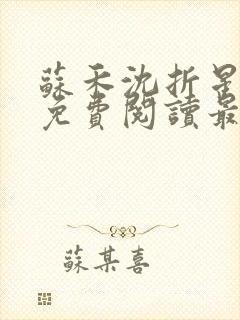 蘇禾沈折星
免費閱讀最
蘇某喜